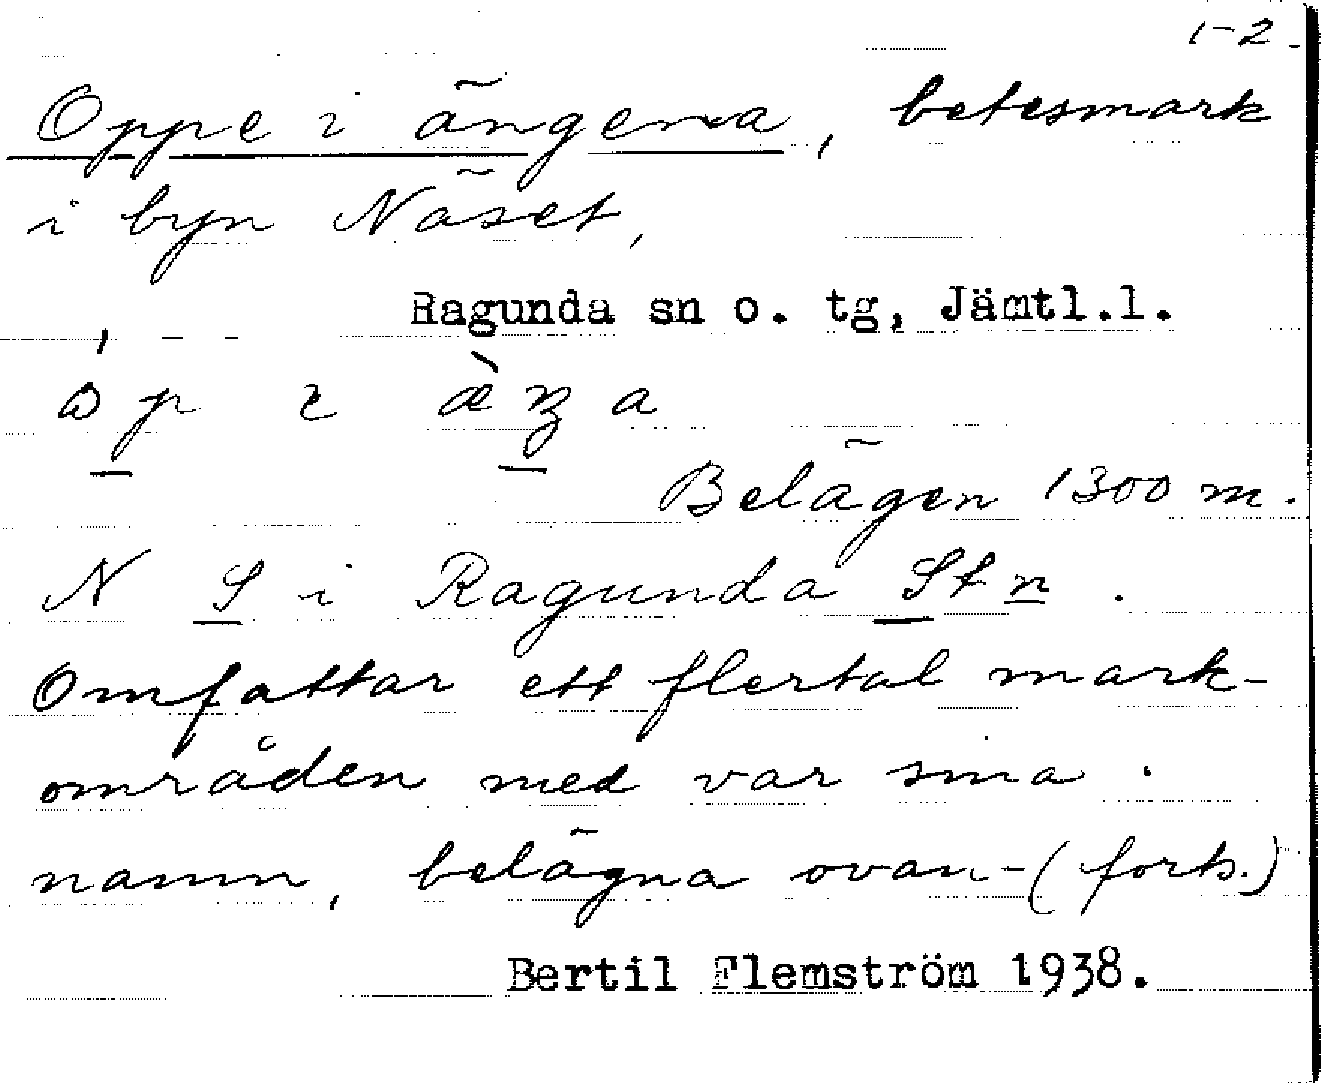 1-2.
Oppe i ängerna, betesmark
i byn Näset,
Ragunda sn o. tg, Jämtl.l.
N S i Ragunda Stn.
Belägen 1300 m.
Omfattar ett flertal mark-
områden med var sina
namn, belägna ovan- (forts.)
Bertil Flemström 1938.